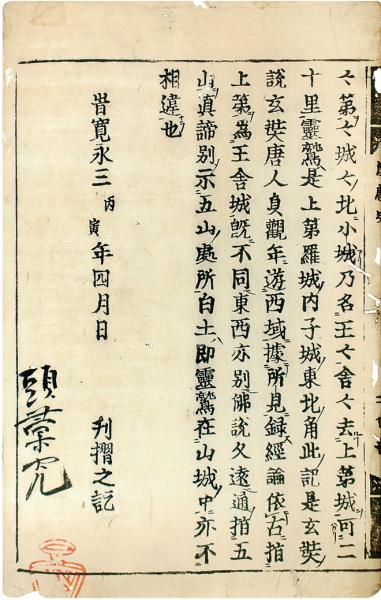 〻第〻城〻北小城乃名王〻舍〻去上第城可二
十里靈鷲是上第羅城内子城東北角此記是玄奘
説玄奘唐人貞觀年遊西域據所見録經論依古指
上第爲王舍城既不同東西亦別佛説久遠通指五
山真諦別示五山處所白土即靈鷲在山城中亦不
相違也
旹寛永三丙寅年四月日
刋摺之訖